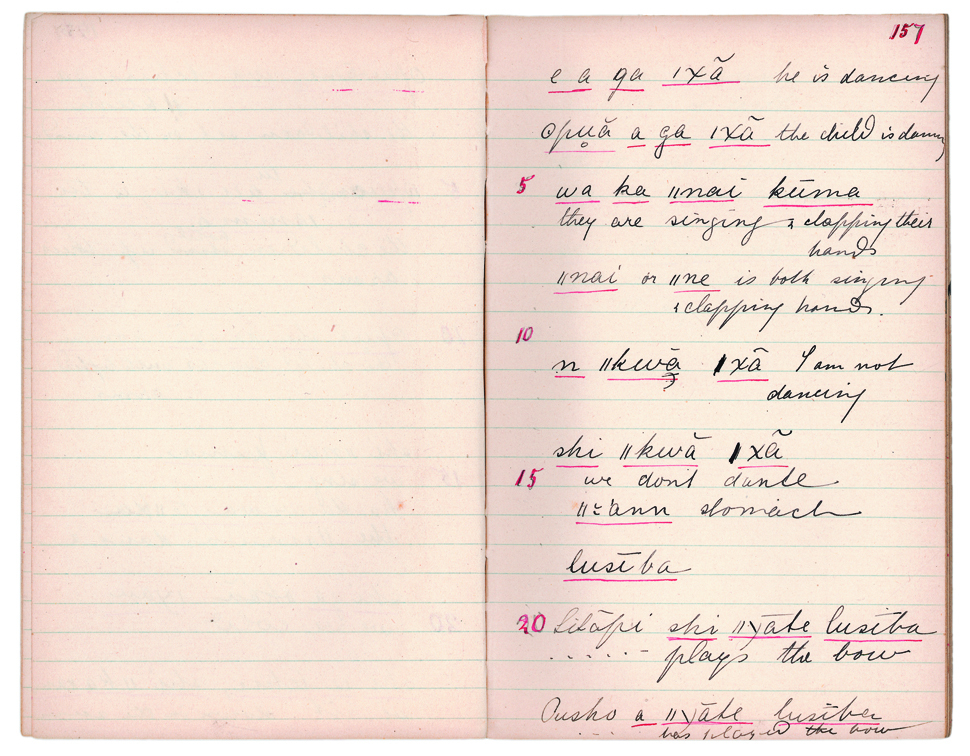 157
e a ga ǀxã he is dancing
Opu̥ã a ga ǀxã the child is dancing
5 wa ka ǁnai kūma
they are singing & clapping their
hands
ǁnai or ǁne is both singing
& clapping hands.
10
n ǁkwā ǀxã I am not
dancing
shi ǁkwā ǀxã
15 we don't dance
ann stomach
lusība
20 shi lusība
plays the bow
a lusība
has played the bow